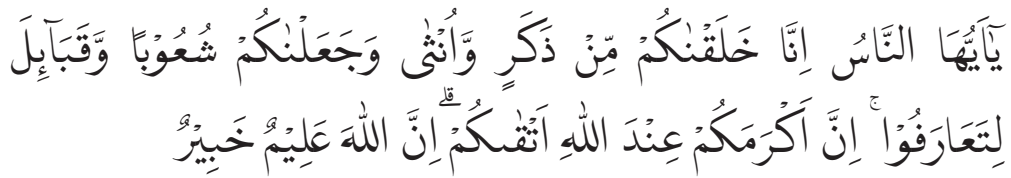 يٰٓاَيُّهَا النَّاسُ اِنَّا خَلَقْنٰكُمْ مِّنْ ذَكَرٍ وَّاُنْثٰى وَجَعَلْنٰكُمْ شُعُوْبًا وَّقَبَاۤىِٕلَ
لِتَعَارَفُوْا ۚ اِنَّ اَكْرَمَكُمْ عِنْدَ اللّٰهِ اَتْقٰىكُمْ ۗ اِنَّ اللّٰهَ عَلِيْمٌ خَبِيْرٌ